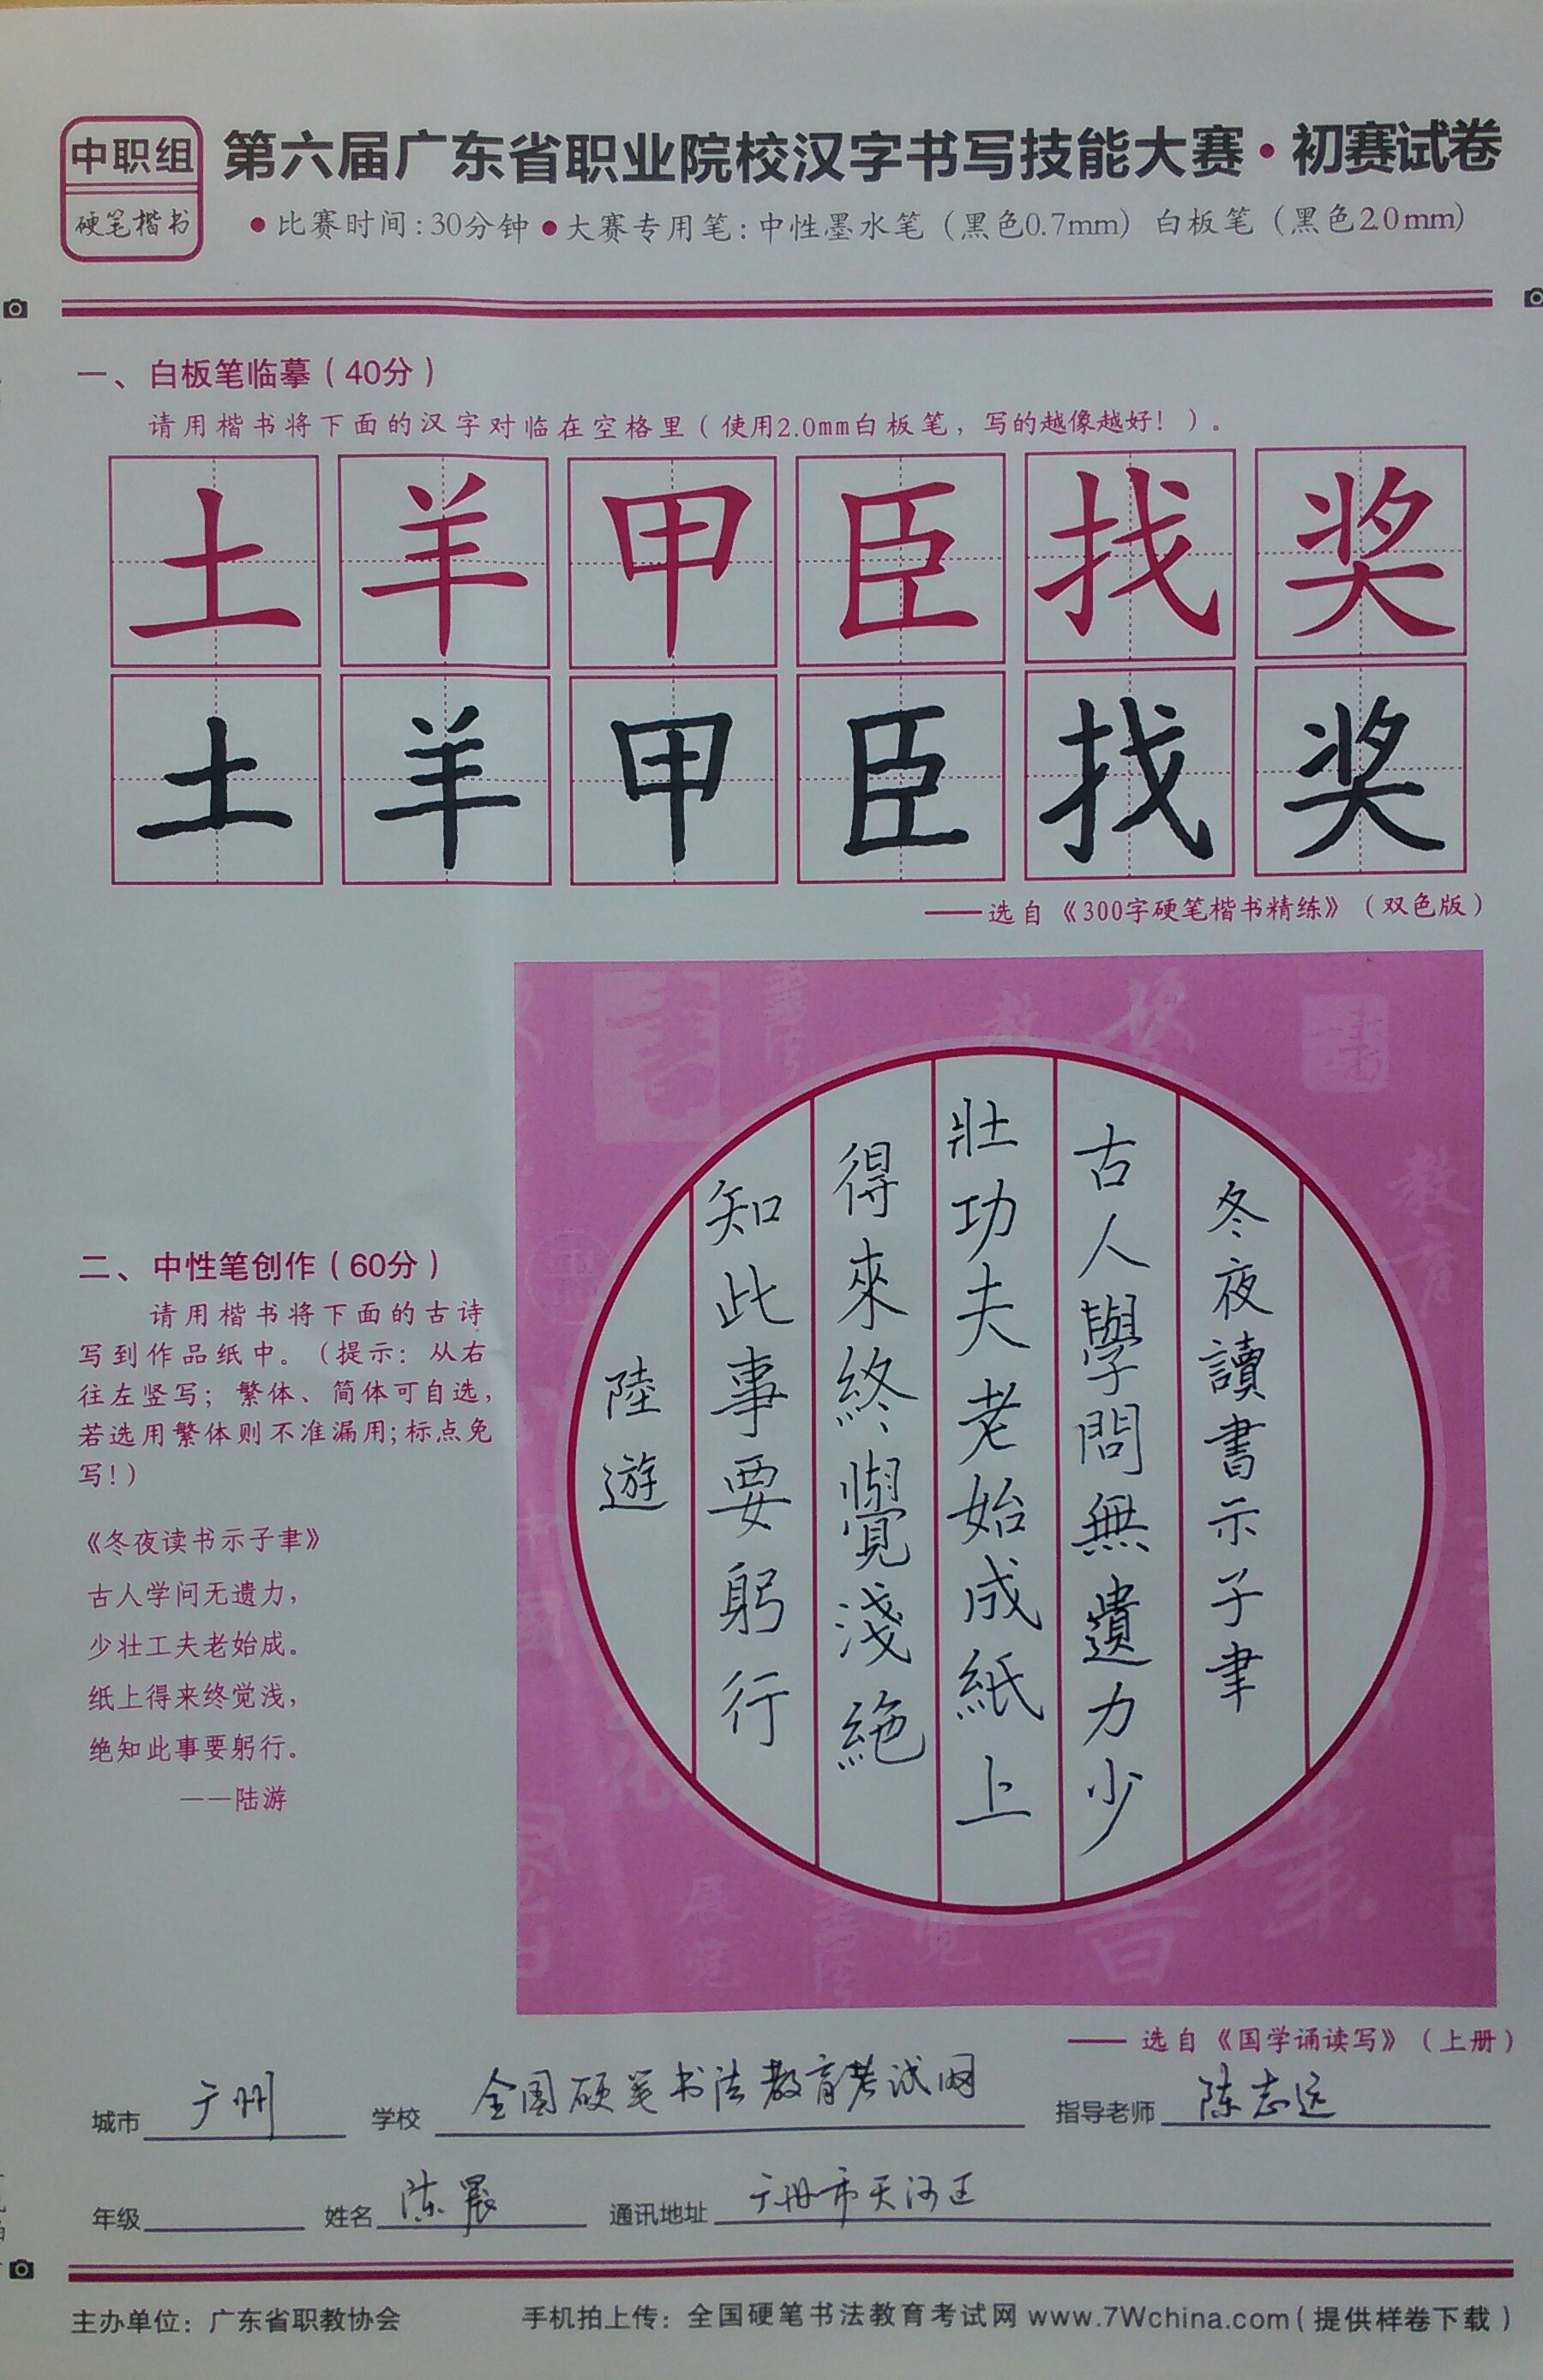 中职组
硬笔楷书
第六届广东省职业院校汉字书写技能大赛·初赛试卷
●比赛时间:30分钟●大赛专用笔:中性墨水笔(黑色0.7mm) 白板笔(黑色2.0mm)
一、白板笔临摹(40分)
请用楷书将下面的汉字对临在空格里(使用2.0mm白板笔,写的越像越好!)。
土羊甲臣找奖
土羊甲臣找奖
——选自《300字硬笔楷书精练》(双色版)
二、中性笔创作(60分)
请用楷书将下面的古诗
写到作品纸中。(提示:从右
往左竖写;繁体、简体可自选,
若选用繁体则不准漏用;标点免
写!)
《冬夜读书示子聿》
古人学问无遗力,
少壮工夫老始成。
纸上得来终觉浅,
绝知此事要躬行。
——陆游
冬夜讀書示子聿
古人學問無遺力少
壯功夫老始成紙上
得來終覺淺絕
知此事要躬行
陸遊
——选自《国学诵读写》(上册)
城市 广州 学校 全国硬笔书法教育考试网 指导老师 陈志远
年级 姓名 陈晨 通讯地址 广州市天河区
主办单位:广东省职教协会 手机拍上传:全国硬笔书法教育考试网 www.7Wchina.com(提供样卷下载)